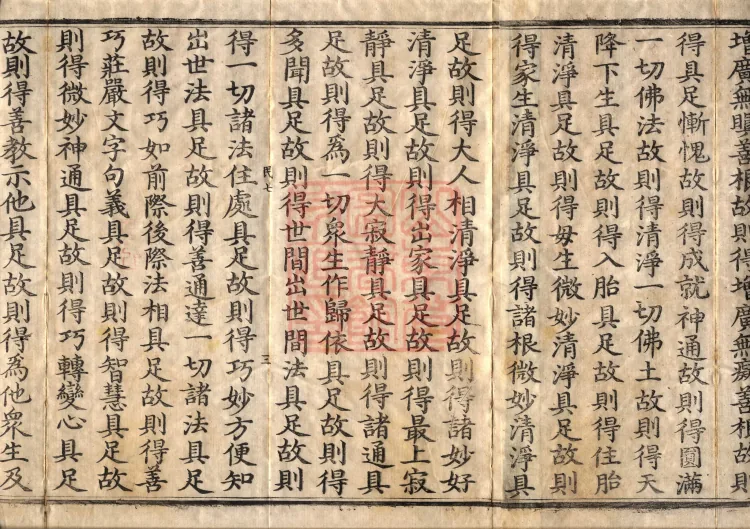 增廣無瞋善相故則得增廣無癡善相故則
得具足慚愧故則得成就神通故則得圓滿
一切佛法故則得清淨一切佛土故則得天
降下生具足故則得入胎具足故則得住胎
清淨具足故則得毋生微妙清淨具足故則
得家生清淨具足故則得諸根微妙清淨具
足故則得大人相清淨具足故則得諸妙好
清淨具足故則得出家具足故則得最上寂
靜具足故則得大寂靜具足故則得諸通具
足故則得為一切衆生作歸依具足故則得
多聞具足故則得世間出世間法具足故則
民七 三
得一切諸法住處具足故則得巧妙方便知
出世法具足故則得善通達一切諸法具足
故則得巧如前際後際法相具足故則得善
巧莊嚴文字句義具足故則得智慧具足故
則得微妙神通具足故則得巧轉變心具足
故則得善教示他具足故則得為他衆生及